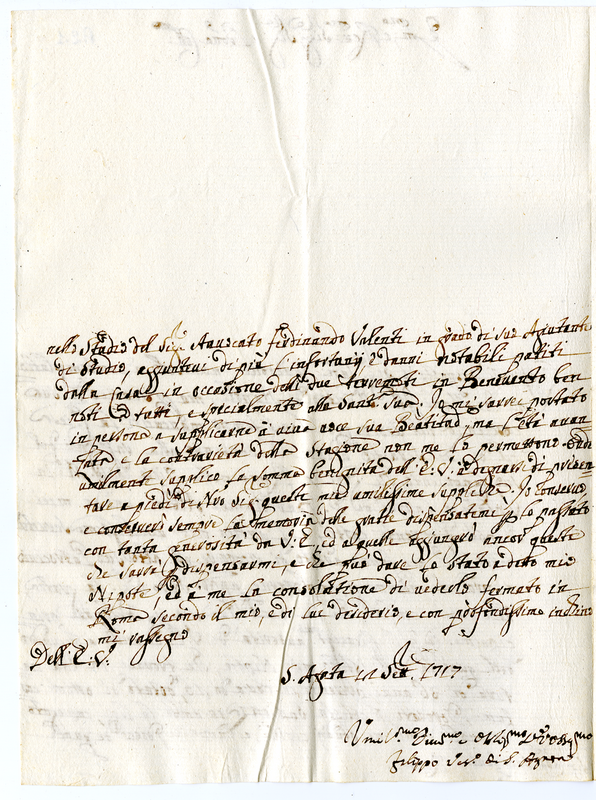 nello Studio del Sig.r Auuocato Ferdinando Valenti in grado di suo Aiutante
di Studio, aggiuntiui di più l'infortunij e danni notabili patiti
dalla Casa in occasione delli due terremoti in Beneuento ben
noti à tutti, e specialmente alla Sant. Sua. Io mi sarei portato
in persona a supplicarne à uiua uoce sua Beatitud.e, ma l'età auan
zata e la contrarietà della Stazione non me lo permettono
umilmente supplico la somma benignità dell'E.V. à degnarsi di presen
tare a piedi di N.ro Sig.re queste mie umilissime suppliche. Io conseruo,
e conseruerò sempre la memoria delle grazie dispensatemi per lo passato
con tanta generosità da V.E. ed a quelle aggiungerò ancor queste
che sarà per dispensarmi, e che può dare lo stato à detto mio
Nipote, ed à me la consolatione di uederlo fermato in
Roma secondo il mio, e di lui desiderio, e con profondissimo inchino
mi rassegno
Dell'E.V.
S. Agata 12 Sett. 1717
Umil.mo Diuot.mo e Obblig.mo
Filippo Vesc. di S. Agata